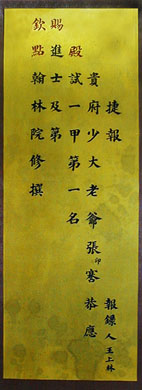 捷報
貴府少大老爺張印謇恭應
殿試一甲第一名
賜進士及第
欽點翰林院修撰
報鏍人王上林